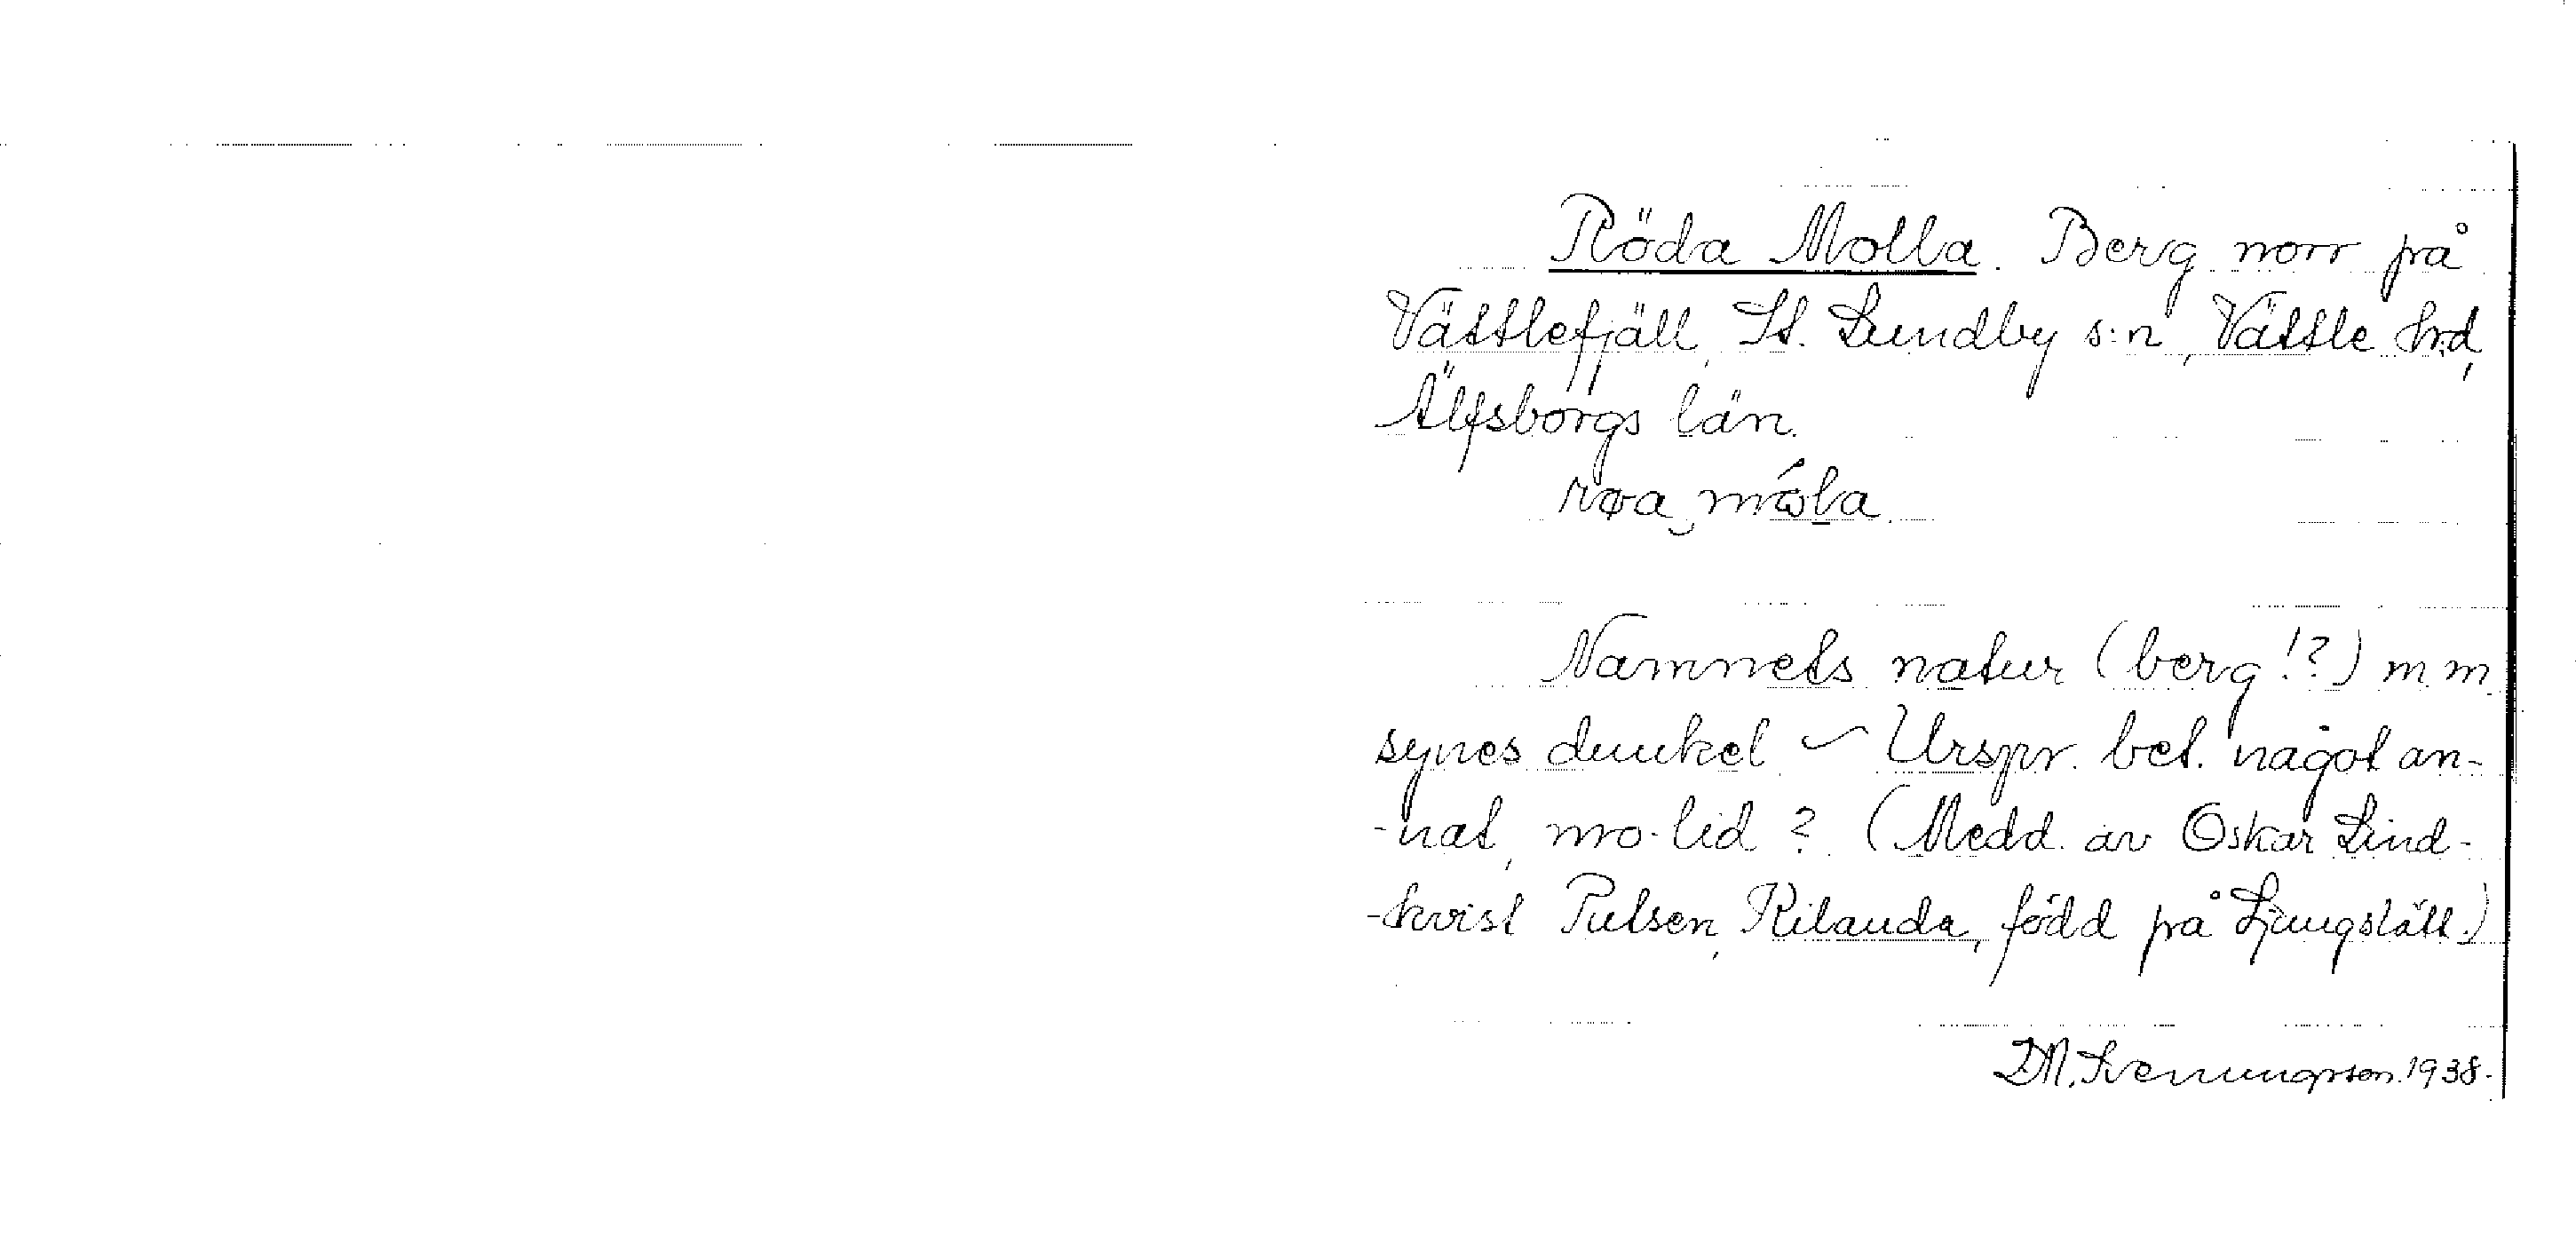 Röda Molla. Berg norr på
Vättlefjäll, St. Lundby s:n, Vättle hd,
Älfsborgs län.
røa móla
Namnets natur (berg!?) m m
synes dunkel – Urspr. bet. något an-
-nat, mo-lid? (Medd. av Oskar Lind-
-kvist Pulsen, Kilanda, född på Ljungslätt.)
1938.